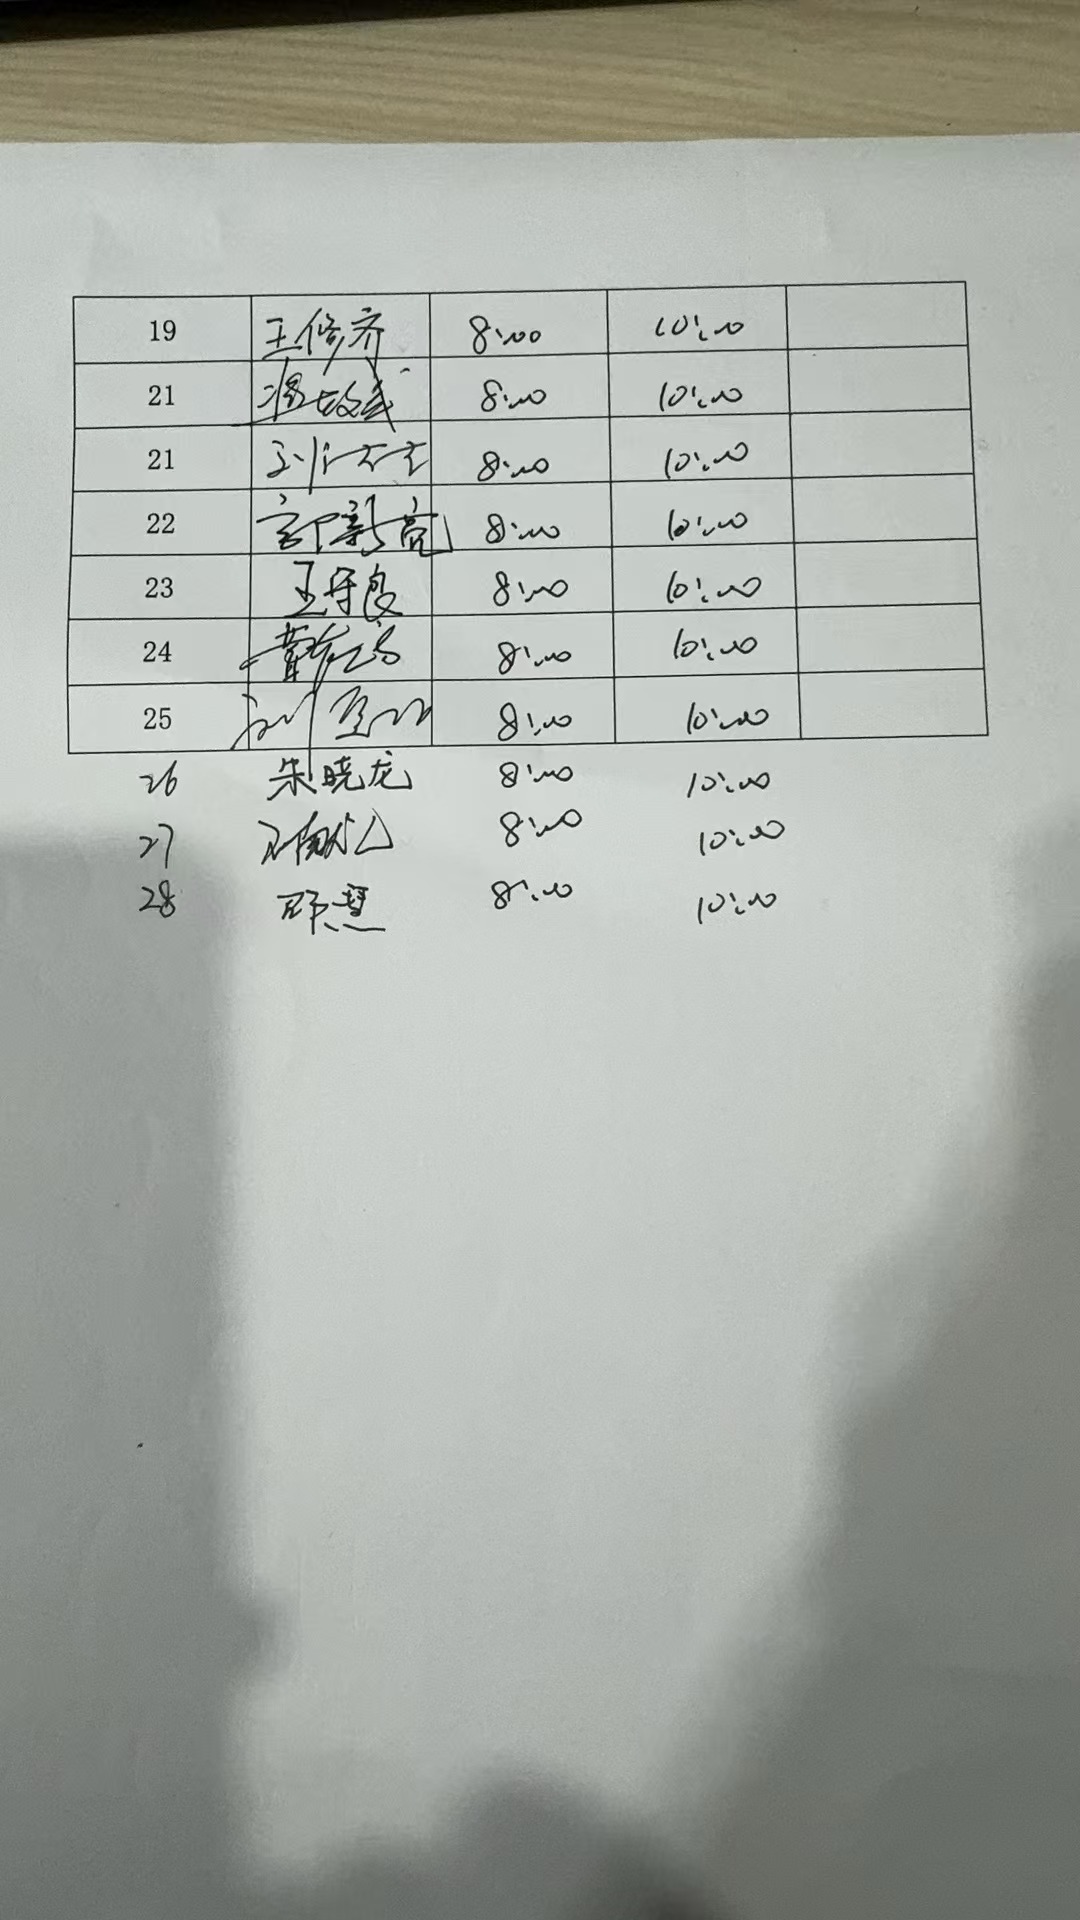 19 王修齐 8:00 10:00
21 8:00 10:00
21 8:00 10:00
22 郭新亮 8:00 10:00
23 王守良 8:00 10:00
24 8:00 10:00
25 8:00 10:00
26 朱晓龙 8:00 10:00
27 8:00 10:00
28 8:00 10:00